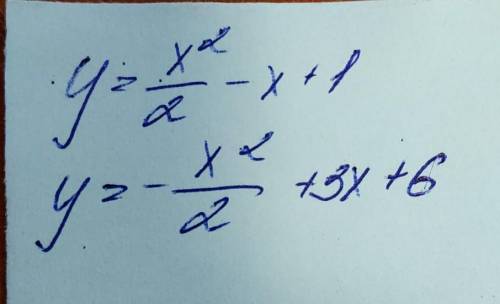 y = x²/2 - x + 1
y = - x²/2 + 3x + 6